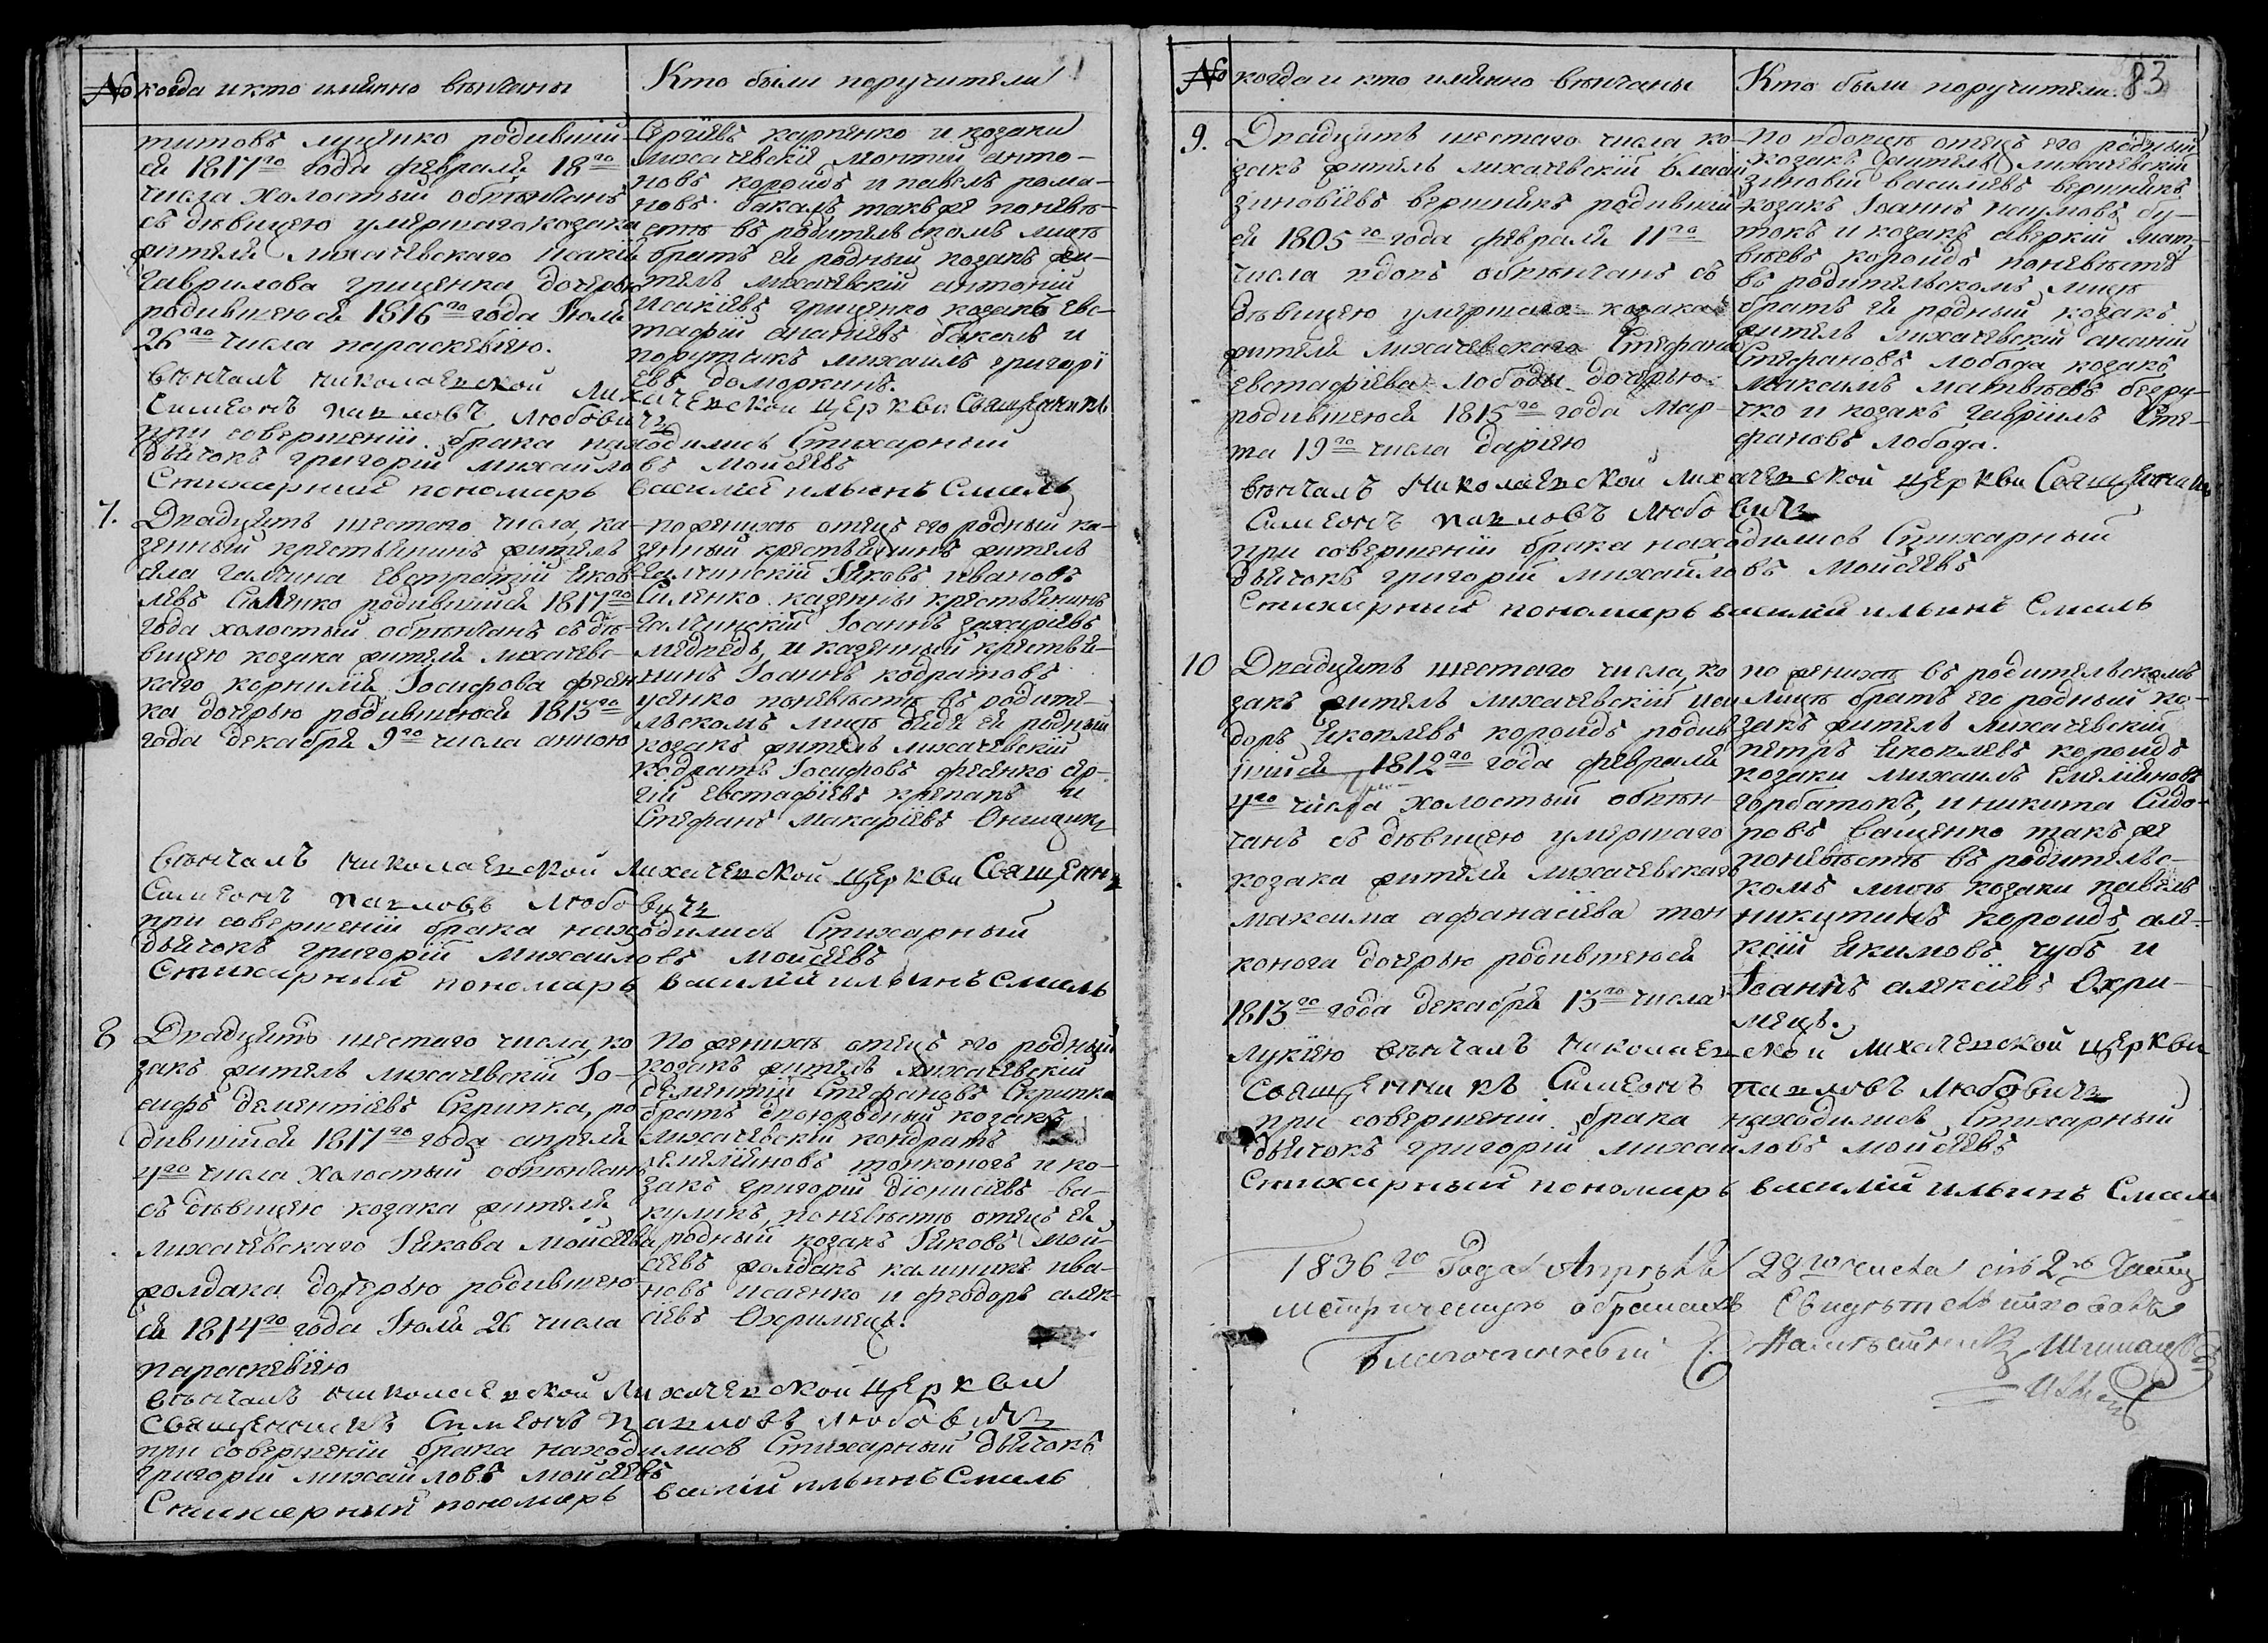 № когда и кто имянно вѣнчаны
Кто были поручители
титовъ луценко родившій-
ся 1817го года февраля 18го
числа холостый обвѣнчанъ
съ дѣвицею умершаго козака
жителя лихачевскаго Исакія
гаврилова гриценка дочерью
родившеюся 1816го года Іюля
26го числа параскевіею.
Сергіевъ карпенко и козаки
лихачевскіе леонтій анто-
новъ короидъ и павелъ рома-
новъ бакалъ такъ же поневѣ-
стѣ въ родительскомъ лицѣ
братъ ея родный козакъ жи-
тель лихачевскій антоній
исакіевъ гриценко козакъ евс-
тафій ананіевъ бакалъ и
порутчикъ михаилъ григорі
евъ доморкинъ.
вѣнчалъ николаевской лихачевской церкви Священникъ
Симеонъ павловъ любовичъ
при совершеніи брака находились Стихарный
дьячокъ григорій михайловъ Мойсеевъ
Стихарный пономарь василій ильинъ Смаль
7. Двадцять шестаго числа, ка-
зенный крестьянинъ житель
села галчина Евстратій яков-
левъ Силенко родившійся 1817го
года холостый обвѣнчанъ съ дѣ-
вицею козака жителя лихачевс-
каго корнилія Іосифова фесен
ка дочерью родившеюся 1815го
года декабря 9го числа анною
по женихѣ отецъ его родный ка-
зенный крестьянинъ житель
галчинскій Яковъ ивановъ
Силенко казенны крестьянинъ
галчинскій Іоаннъ захаріевъ
медведь, и казенный крестья-
нинъ Іоаннъ кодратовъ
усенко поневѣстѣ въ родите-
льскомъ лицѣ дядя ея родный
козакъ житель лихачевскій
кодратъ Іосифовъ фесенко сер-
гій Евстафіевъ крепакъ и
Стефанъ макаріевъ
вѣнчалъ николаевской лихачевской церкви Священникъ
Симеонъ павловъ любовичъ
при совершеніи брака находились Стихарный
дьячокъ григорій Михайловъ мойсеевъ
Стихарный пономарь василій ильинъ Смаль
8 Двадцять шестаго числа, ко
закъ житель лихачевскій Іо-
сифъ дементіевъ Скрипка, ро
дившійся 1817го года апреля
4го числа холостый обвѣнчанъ
съ дѣвицею козака жителя
лихачевскаго Іякова Мойсеева
ролдака дочерью родившею-
ся 1814го года Іюля 26 числа
параскевіею
По женихѣ отецъ его родный
козакъ житель лихачевскій
дементій Стефановъ Скрипка
братъ двоюродный козакъ
лихачевскій кондратъ
емеляновъ тонконогъ и ко-
закъ григорій діонисіевъ ва-
куликъ, поневѣстѣ отецъ ея
родный козакъ Іяковъ мой-
сеевъ ролдакъ калиникъ ива-
новъ исаенко и феодоръ алек-
сіевъ Охримецъ.
вѣнчалъ николаевской лихачевской церкви
священникъ Симеонъ павловъ любовичъ
при совершеніи брака находились Стихарный дьячокъ
григорій михайловъ мойсеевъ
Стихарный пономарь василій ильинъ Смаль
№ когда и кто имянно вѣнчаны
Кто были поручители.
83
9. Двадцять шестаго числа ко-
закъ житель лихачевскій власій
зиновіевъ вершнякъ родившій
ся 1805го года февраля 11го
числа вдовъ обвѣнчанъ съ
дѣвицею умершаго козака
жителя лихачевскаго Стефана
евстафіева лободы дочерью
родившеюся 1815го года Мар-
та 19го числа даріею
по вдовцѣ отецъ его родный
козакъ житель лихачевскій
зиновій василіевъ вершнякъ
козакъ Іоаннъ наумовъ бу-
токъ и козакъ аверкій мат-
віевъ короидъ поневѣстѣ
въ родительскомъ лицѣ
братъ ея родный козакъ
житель лихачевскій ананій
Стефановъ лобода козакъ
Максимъ матвѣевъ безру-
чко и козакъ гавріилъ Сте-
фановъ лобода.
вѣнчалъ николаевской лихачевской церкви Священникъ
Симеонъ павловъ любовичъ
при совершеніи брака находились Стихарный
дьячокъ григорій михайловъ Мойсеевъ
Стихарный пономарь василій ильинъ Смаль
10 Двадцять шестаго числа, ко
закъ житель лихачевскій иси
доръ Яковлевъ короидъ родив
шійся 1812го года февраля
4го числа холостый обвѣн-
чанъ съ дѣвицею умершаго
козака жителя лихачевскаго
максима афанасіева тон
конога дочерью родившеюся
1813го года декабря 13го числа
лукіею вѣнчалъ николаевской лихачевской церкви
по женихѣ въ родительскомъ
лицѣ братъ его родный ко-
закъ житель лихачевскій
петръ Яковлевъ короидъ
козаки михаилъ Емеляновъ
горбатокъ, и никита Сидо-
ровъ ващенко такъ же
поневѣстѣ въ родительс-
комъ лицѣ козаки павелъ
никитинъ короидъ але-
ксій Якимовъ чубъ и
Іоаннъ алексіевъ Охри-
мецъ.
священникъ Симеонъ павловъ любовичъ
при совершеніи брака находились Стихарный
дьячокъ григорій михайловъ мойсеевъ
Стихарный пономарь василій ильинъ Смаль
1836го Года Апрѣля 28го числа сію 2ю часть
метрическую обращалъ Свидѣтельствовалъ
Благочинный